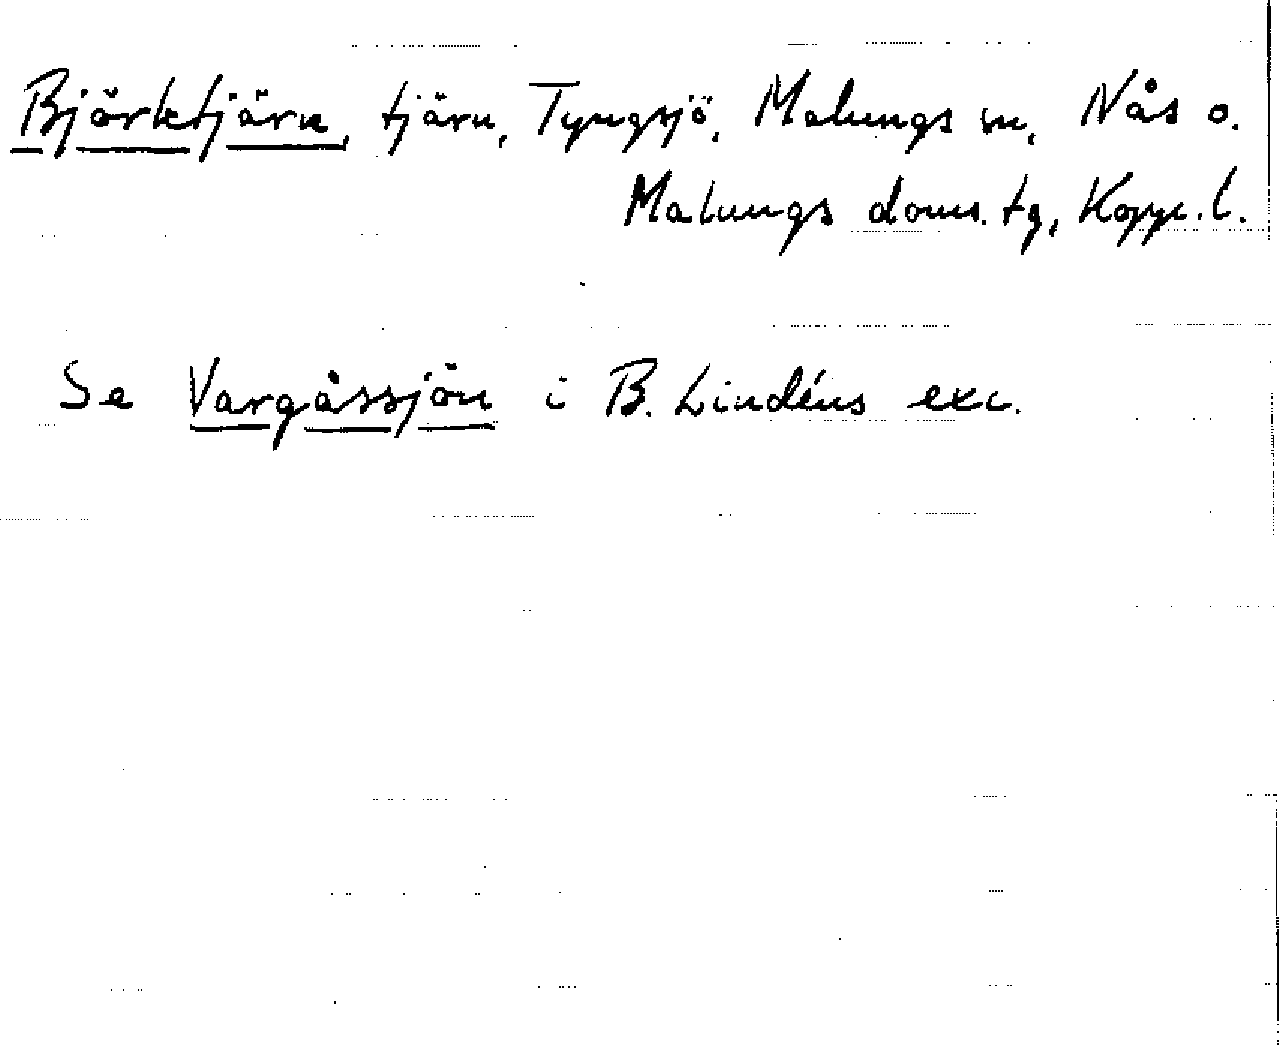 Björktjärn, tjärn, Tyngsjö, Malungs m, Nås o.
Malungs doms. tg, Kopp. l.
Se Vargåssjön i B. Lindéns exc.